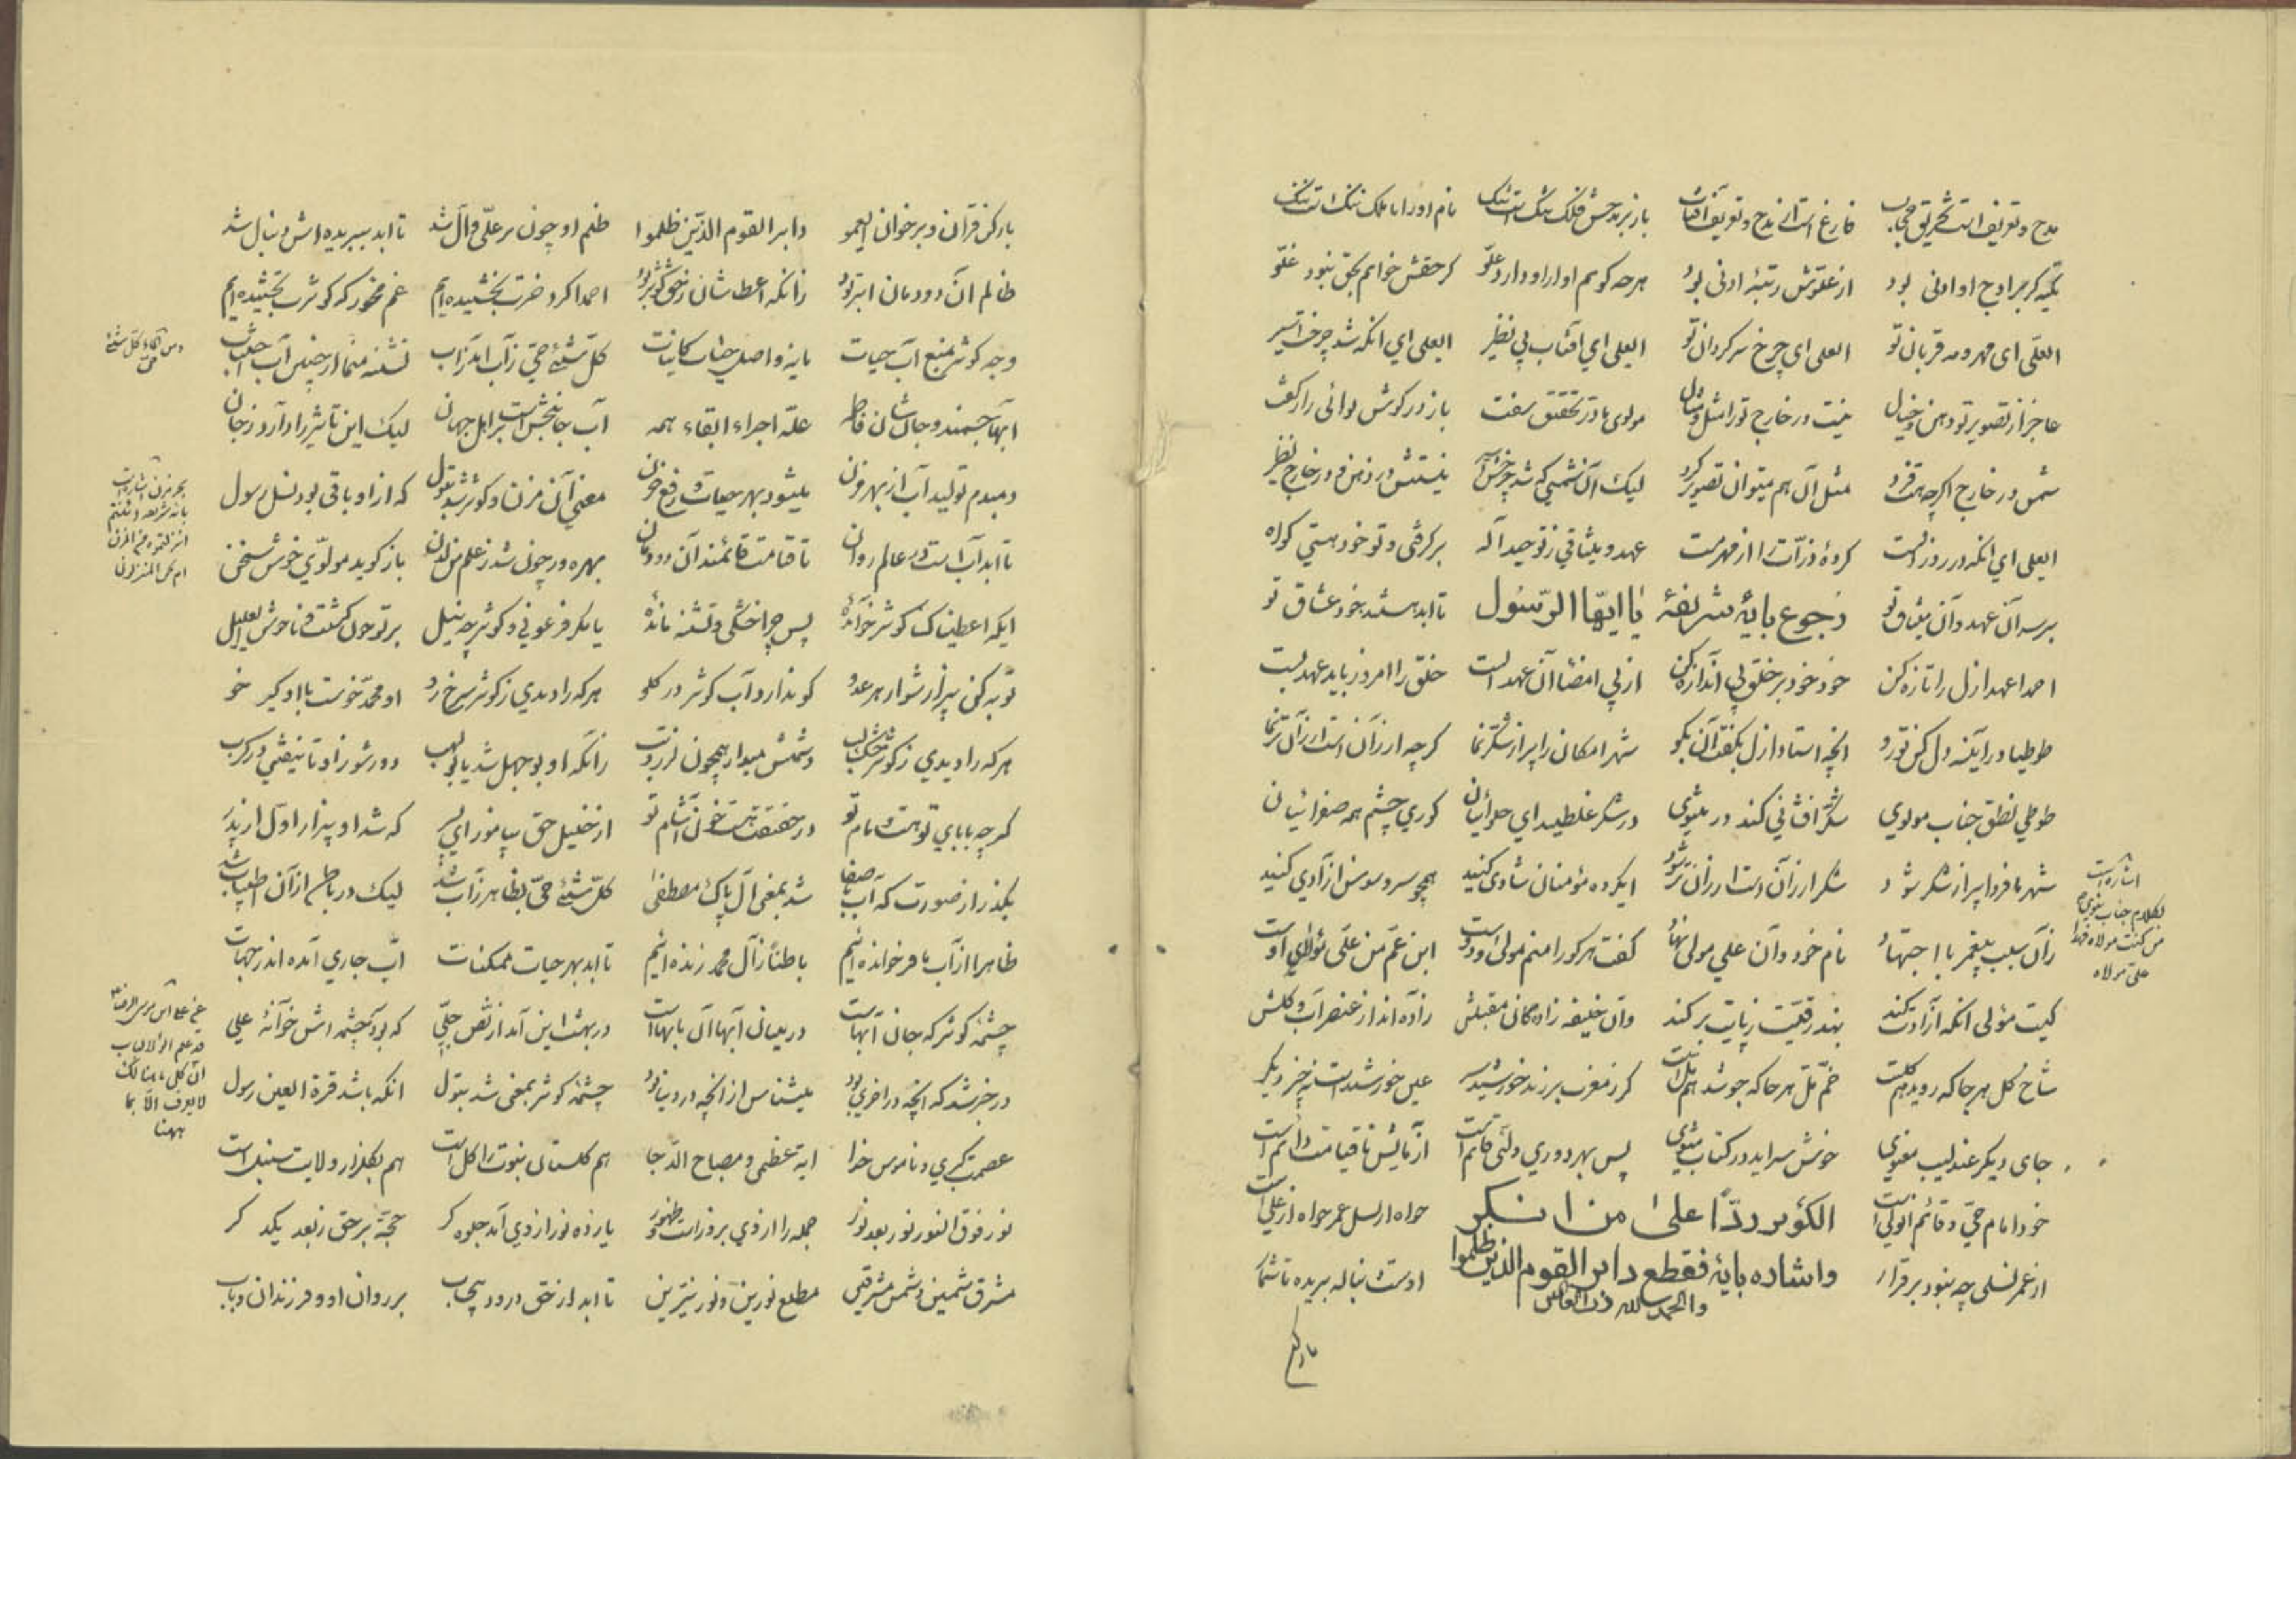 مدح و تعریف است تخریق حجاب فارغ است از مدح و تعریف آفتاب باز بر مدحش فلک تنگ است تنگ نام او را با ملک ننگ است ننگ
تکیه گر بر اوج او ادنی بود از علوش رتبهٔ ادنی بود هر چه گویم او از او دارد علو گر حقش خوانم بحق نبود غلو
العلی ای مهر و مه قربان تو العلی ای چرخ سرگردان تو العلی ای آفتاب بی نظیر العلی ای آنکه شد چرخت اسیر
عاجز از تصویر تو ذهن و خیال نیست در خارج تو را مثل و مثال مولوی با در تحقیق سفت باز در گوش لوائی راز گفت
شمس در خارج اگر چه هست فرد مثل آن هم میتوان تصویر کرد لیک آن شمسی که شد چرخش اثیر نیستش در ذهن و در خارج نظیر
العلی ای آنکه در روز الست کردهٔ ذرات را از فهم مست عهد و میثاقی ز توحید اله بر گرفتی و تو خود هستی گواه
بر سر آن عهد و آن میثاق تو رجوع بایهٔ شریفهٔ یا ایها الرسول تا ابد هستند خود عشاق تو
احمدا عهد ازل را تازه کن خوذ خود بر خلق بی اندازه کن از پی امضا آن عهد الست خلق را امروز باید عهد بست
طوطیا در آینه دل کن تو رو آنچه استاد ازل گفت آن بگو شهر امکان را پر از شکر نما گر چه ارزان است ارزان تر نما
طوطی نطق جناب مولوی شکر افشانی کند در مثنوی در شکر غلطید ای حلوائیان کوری چشم همه صفرائیان
شهر ما فردا پر از شکر شود شکر ارزان است ارزان تر شود ای گروه مؤمنان شادی کنید همچو سرو و سوسن آزادی کنید
زان سبب پیغمبر با اجتهاد نام خود و آن علی مولی نهاد گفت هر کو را منم مولی و دوست ابن عم من علی مولای اوست
کیست مولی آنکه آزادت کند بند رقیت ز پایت بر کند وان خلیفه زادگان مقبلش زاده اند از عنصر آب و گلش
شاخ گل هر جا که روید هم گلست خم مل هر جا که جوشد هم مل است گر ز مغرب بر زند خورشید سر عین خورشید است نه چیز دگر
جای دیگر عندلیب معنوی خوش سراید در کتاب مثنوی پس بهر دوری ولی قائم است آزمایش تا قیامت دائم است
خود امام حی و قائم آن ولی است الکوثر ردّاً علی من انکر خواه از نسل عمر خواه از علی است
از عمر نسلی چه نبود برقرار و اشاره بایهٔ فقطع دابر القوم الذین ظلموا والحمد لله اوست دنباله بریده تا شمار
اشاره است
بکلام جناب نبوی
من کنت مولاه فهذا
علی مولاه
باز کن قرآن و بر خوان ای عمو دابر القوم الذین ظلموا ظلم او چون بر علی و آل شد تا ابد ببریده اش دنبال شد
ظالم آن دودمان ابتر بود زانکه اعطاشان ز حق کوثر بود احمدا گر دخترت بخشیده ایم غم مخور که کوثرت بخشیده ایم
وجه کوثر منبع آب حیات مایه و اصل حیات کائنات کل شیئ حی ز آب آمد ز آب تشنه منما از چنین آب اجتناب
آبها جسمند و جانشان فاطمه علة اجراء ابقاء همه آب جانبخش است بر اهل جهان لیک این تاثیر را دارد ز جان
دمبدم تولید آب از بهر مزن میشود بهر حیات و رفع حزن معنی آن مزن و کوثر شد بتول که از او باقی بود نسل رسول
تا ابد آب است در عالم روان تا قیامت قائمند آن دودمان بهره ور چون شد ز علم من لدن باز گوید مولوی خوش سخن
ایکه اعطیناک کوثر خواندهٔ پس چرا خشکی و تشنه ماندهٔ یا مگر فرعونی و کوثر چه نیل بر تو خون گشته و ناخوش ای علیل
توبه کن بیزار شو از هر عدو کو ندارد آب کوثر در کدو هر که را دیدی ز کوثر سرخ رو او محمد خوست با او گیر خو
هر که را دیدی ز کوثر خشک لب دشمنش میدار همچون مرگ و تب زانکه او بوجهل شد یا بولهب دور شو زو تا نیفتی در کرب
گر چه بابای تو هست و مام تو در حقیقت هست خون آشام تو از خلیل حق بیاموز ای پسر که شد او بیزار اول از پدر
بگذر از صورت که آب با صفا شد بمعنی آل پاک مصطفی کل شیئ حی بظاهر ز آب شد لیک در باطن از آن اطیاب شد
ظاهرا از آب با فر خوانده ایم باطنا ز آل محمد زنده ایم تا ابد بهر حیات ممکنات آب جاری آمده اندر جهات
چشمهٔ کوثر که جان آبهاست در میان آبها آن با بهاست در بهشت این آمد از نص جلی که بود چشمه اش خوانهٔ علی
در خبر شد که آنچه در اخری بود میشناس از آنچه در دنیا بود چشمهٔ کوثر بمعنی شد بتول آنکه باشد قرة العین رسول
عصمت کبری و ناموس خدا ایه عظمی و مصباح الدجا هم گلستان نبوت را گل است هم بگلزار ولایت سنبل است
نور فوق النور نور بعد نور جمله را از وی بروز است و ظهور یازده نور از وی آمد جلوه گر حجة بر حق ز بعد یکدگر
مشرق شمسین و شمس مشرقین مطلع نورین و نور نیرین تا ابد از حق درود بیحساب بر روان او و فرزندان و باب
و من الماء کل شیئ
حی
قد علم اولو الالباب
ان کل ما هنالک
لا یعرف الا بما
ههنا
باز کن